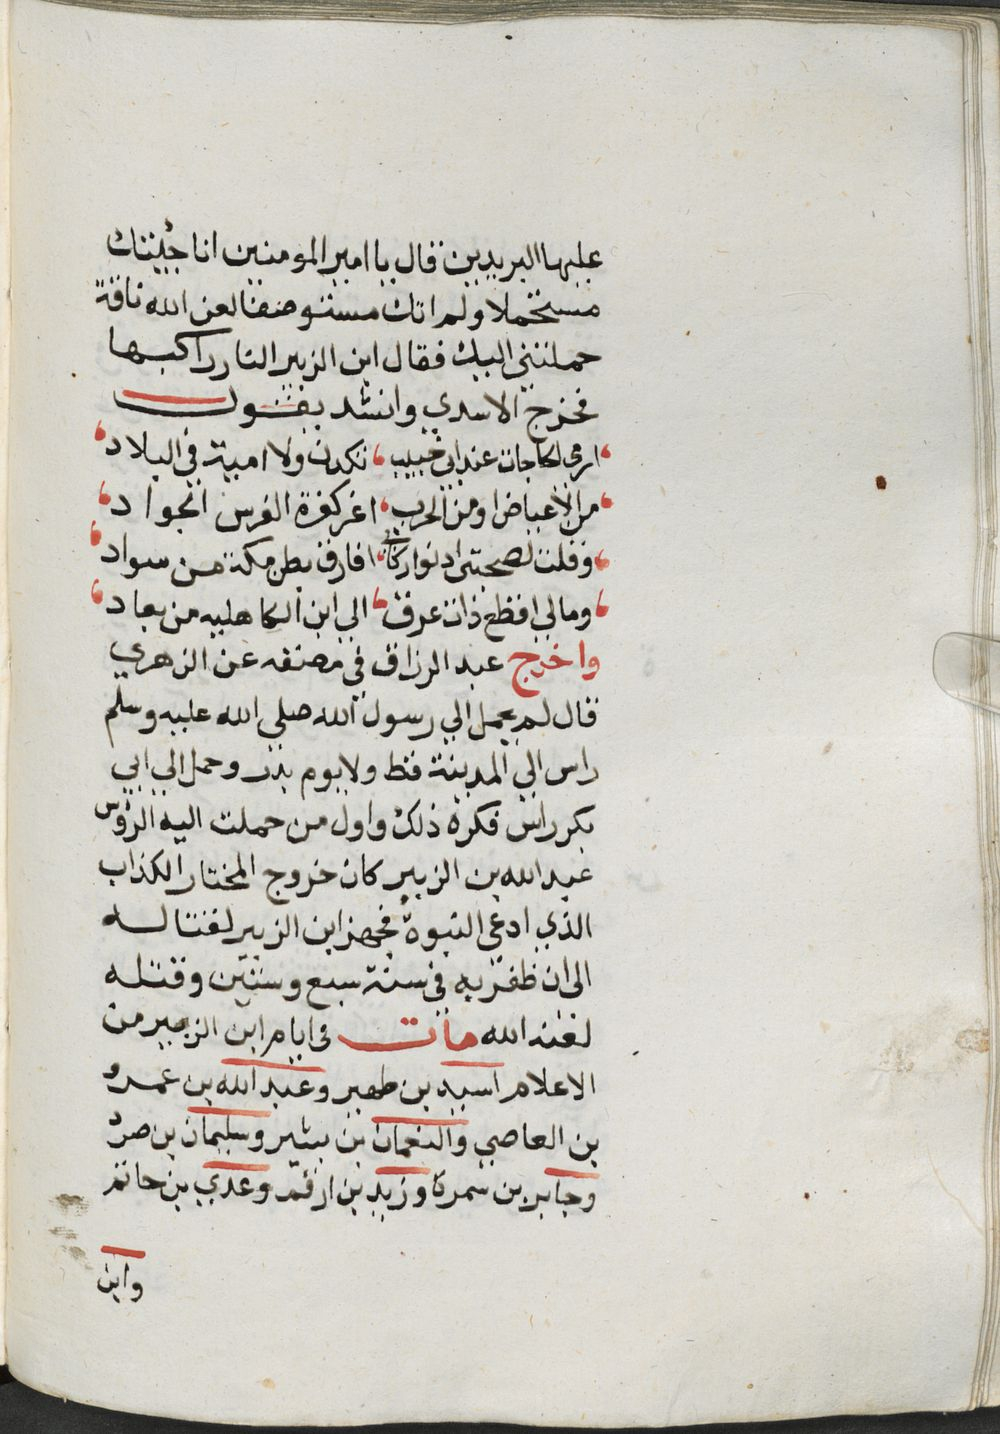 عليها البريدين قال يا امير المومنين انا جئتك
مستحملا ولم اتك مستوصفا لعن الله ناقة
حملتني اليك فقال ابن الزبير ان وراكبها
فخرج الاسدي وانشد يقول
ارى الحاجات عند ابي خبيب نكدن ولا امية في البلاد
من الأعياض او من الحرب اغر كغرة الفرس الجواد
وقلت لصحبتي ادنوا ركابي افارق بطن مكة من سواد
ومالي اقطع ذات عرق الي ابن الكاهليه من بعاد
واخرج عبد الرزاق في مصنفه عن الزهري
قال لم يحمل الي رسول الله صلى الله عليه وسلم
راس الي المدينة قط ولا يوم بدر وحمل الي ابي
بكر راس فكره ذلك واول من حملت اليه الرؤس
عبد الله بن الزبير كان خروج المختار الكذاب
الذي ادعى النبوة فجهز ابن الزبير لقتاله
الى ان ظفر به في سنة سبع وستين وقتله
لعنه الله مات في ايام ابن الزبير من
الاعلام اسيد بن ظهير وعبد الله بن عمرو
بن العاصي والنعمان بن بشير وسليمان بن صرد
وجابر بن سمرة وزيد بن ارقم وعدي بن حاتم
وابن